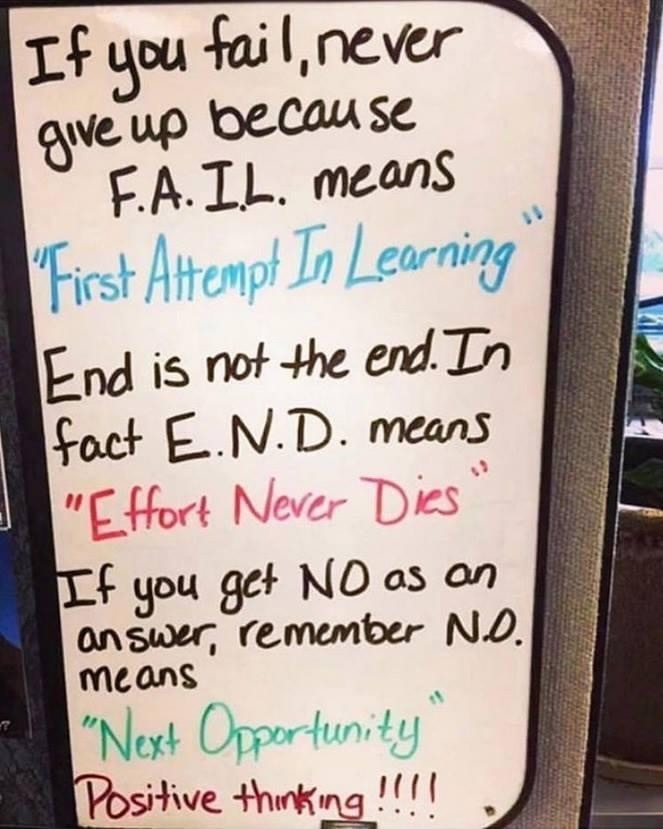 If you fail, never
give up because
F.A.I.L. means
"First Attempt In Learning"
End is not the end. In
fact E.N.D. means
"Effort Never Dies"
If you get NO as an
answer, remember N.O.
means
"Next Opportunity"
Positive thinking !!!!